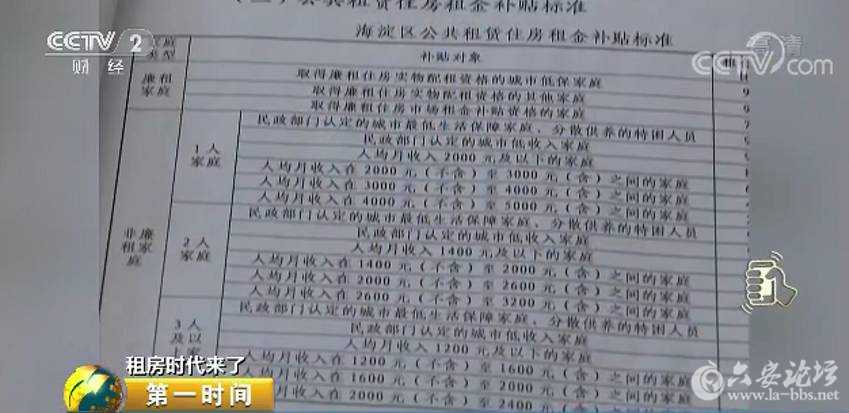 （二）公共租赁住房租金补贴标准
海淀区公共租赁住房租金补贴标准
CCTV 2
财经
高清
CCTV.com
家庭
类型
补贴对象
廉租
家庭
取得廉租住房实物配租资格的城市低保家庭
取得廉租住房实物配租资格的其他家庭
取得廉租住房市场租金补贴资格的家庭
非廉
租家
庭
1人
家庭
民政部门认定的城市最低生活保障家庭、分散供养的特困人员
民政部门认定的城市低收入家庭
人均月收入 2000 元及以下的家庭
人均月收入在 2000 元（不含）至 3000 元（含）之间的家庭
人均月收入在 3000 元（不含）至 4000 元（含）之间的家庭
人均月收入在 4000 元（不含）至 5000 元（含）之间的家庭
2人
家庭
民政部门认定的城市最低生活保障家庭、分散供养的特困人员
民政部门认定的城市低收入家庭
人均月收入 1400 元及以下的家庭
人均月收入在 1400 元（不含）至 2000 元（含）之间的家庭
人均月收入在 2000 元（不含）至 2600 元（含）之间的家庭
人均月收入在 2600 元（不含）至 3200 元（含）之间的家庭
3人
及以
民政部门认定的城市最低生活保障家庭、分散供养的特困人员
民政部门认定的城市低收入家庭
人均月收入 1200 元及以下的家庭
人均月收入在 1200 元（不含）至 1600 元（含）之间的家庭
人均月收入在 1600 元（不含）至 2000 元（含）之间的家庭
在 2000 元（不含）至 2400 元（含）
租房时代来了
第一时间
六安论坛
www.la-bbs.net